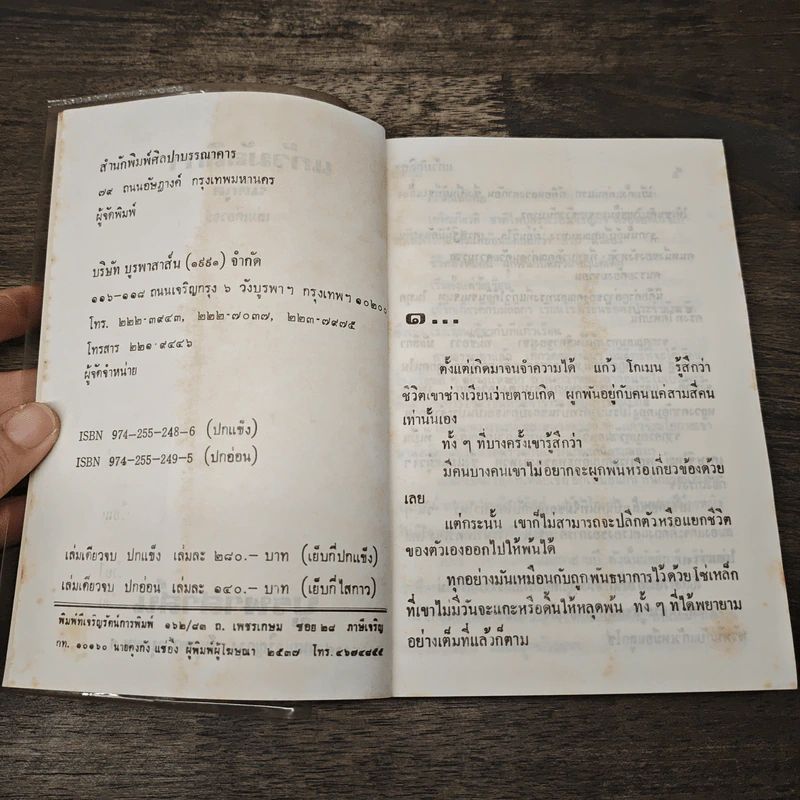 สำนักพิมพ์ศิลปาบรรณาคาร
๗๙ ถนนอัษฎางค์ กรุงเทพมหานคร
ผู้จัดพิมพ์
บริษัท บูรพาสาส์น (๑๙๙๑) จำกัด
๑๑๖-๑๑๘ ถนนเจริญกรุง ๖ วังบูรพาฯ กรุงเทพฯ ๑๐๒๐๐
โทร. ๒๒๒-๓๙๔๓, ๒๒๒-๗๐๓๗, ๒๒๓-๗๙๗๕
โทรสาร ๒๒๑-๙๔๔๖
ผู้จัดจำหน่าย
ISBN 974-255-248-6 (ปกแข็ง)
ISBN 974-255-249-5 (ปกอ่อน)
เล่มเดียวจบ ปกแข็ง เล่มละ ๒๘๐.– บาท (เย็บกี่ปกแข็ง)
เล่มเดียวจบ ปกอ่อน เล่มละ ๑๔๐.– บาท (เย็บกี่ไสกาว)
พิมพ์ที่เจริญรัตน์การพิมพ์ ๑๖๒/๘๓ ถ. เพชรเกษม ซอย ๒๘ ภาษีเจริญ
กท. ๑๐๑๖๐ ผู้พิมพ์ผู้โฆษณา ๒๕๓๗ โทร.
๑...
ตั้งแต่เกิดมาจนจำความได้ แก้ว โกเมน รู้สึกว่า
ชีวิตเขาช่างเวียนว่ายตายเกิด ผูกพันอยู่กับคนแค่สามสี่คน
เท่านั้นเอง
ทั้ง ๆ ที่บางครั้งเขารู้สึกว่า
มีคนบางคนเขาไม่อยากจะผูกพันหรือเกี่ยวข้องด้วย
เลย
แต่กระนั้น เขาก็ไม่สามารถจะปลีกตัวหรือแยกชีวิต
ของตัวเองออกไปให้พ้นได้
ทุกอย่างมันเหมือนกับถูกพันธนาการไว้ด้วยโซ่เหล็ก
ที่เขาไม่มีวันจะแกะหรือดิ้นให้หลุดพ้น ทั้ง ๆ ที่ได้พยายาม
อย่างเต็มที่แล้วก็ตาม